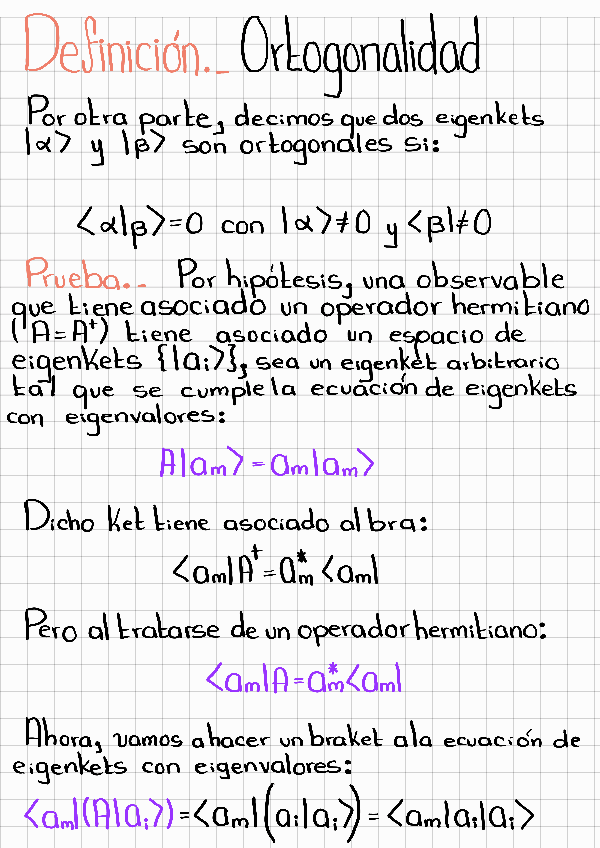 Definición.- Ortogonalidad
Por otra parte, decimos que dos eigenkets
|α> y |β> son ortogonales si:
<α|β>=0 con |α>≠0 y <β|≠0
Prueba.- Por hipótesis, una observable
que tiene asociado un operador hermitiano
(A=A†) tiene asociado un espacio de
eigenkets {|ai>}, sea un eigenket arbitrario
tal que se cumple la ecuación de eigenkets
con eigenvalores:
A|am> = am|am>
Dicho ket tiene asociado al bra:
<am|A†=am* <am|
Pero al tratarse de un operador hermitiano:
<am|A=am*<am|
Ahora, vamos a hacer un braket a la ecuación de
eigenkets con eigenvalores:
<am|(A|ai>)=<am|(ai|ai>)=<am|ai|ai>